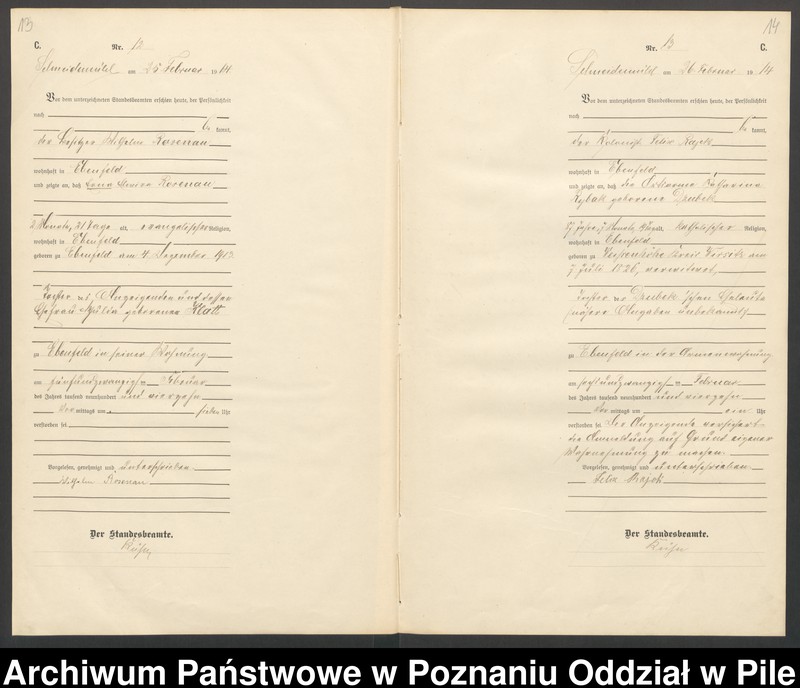 13
C.
Nr. 12
Schneidemühl am 25 Februar 1914
Vor dem unterzeichneten Standesbeamten erschien heute, der Persönlichkeit
nach
kannt,
der Besitzer Wilhelm Rosenau
wohnhaft in Ebenfeld
und zeigte an, daß Rosenau
2 Monate, 21 Tage alt, evangelischer Religion,
wohnhaft in Ebenfeld
geboren zu Ebenfeld am 4. Dezember 1913
Tochter des Anzeigenden und dessen
Ehefrau geborenen Klatt
zu Ebenfeld in seiner Wohnung
am fünfundzwanzigsten Februar
des Jahres tausend neunhundert und vierzehn
Vor mittags um sieben Uhr
verstorben sei
Vorgelesen, genehmigt und unterschrieben
Wilhelm Rosenau
Der Standesbeamte.
14
Nr. 13
C.
Schneidemühl am 26 Februar 1914
Vor dem unterzeichneten Standesbeamten erschien heute, der Persönlichkeit
nach
kannt,
der Felix
wohnhaft in Ebenfeld
und zeigte an, daß die Katharina
Rybak geborene Drubek
Jahre, Monate, alt, katholischer Religion,
wohnhaft in Ebenfeld
geboren zu Kreis Wirsitz am
Juli 1826, verwitwet,
Tochter des Drubek
nähere Angaben unbekannt
zu Ebenfeld in der Armenwohnung
am sechsundzwanzigsten Februar
des Jahres tausend neunhundert und vierzehn
Vor mittags um ein Uhr
verstorben sei Der Anzeigende versichert
die Anmeldung auf Grund eigener
Wahrnehmung zu machen
Vorgelesen, genehmigt und unterschrieben
Felix
Der Standesbeamte.
Archiwum Państwowe w Poznaniu Oddział w Pile